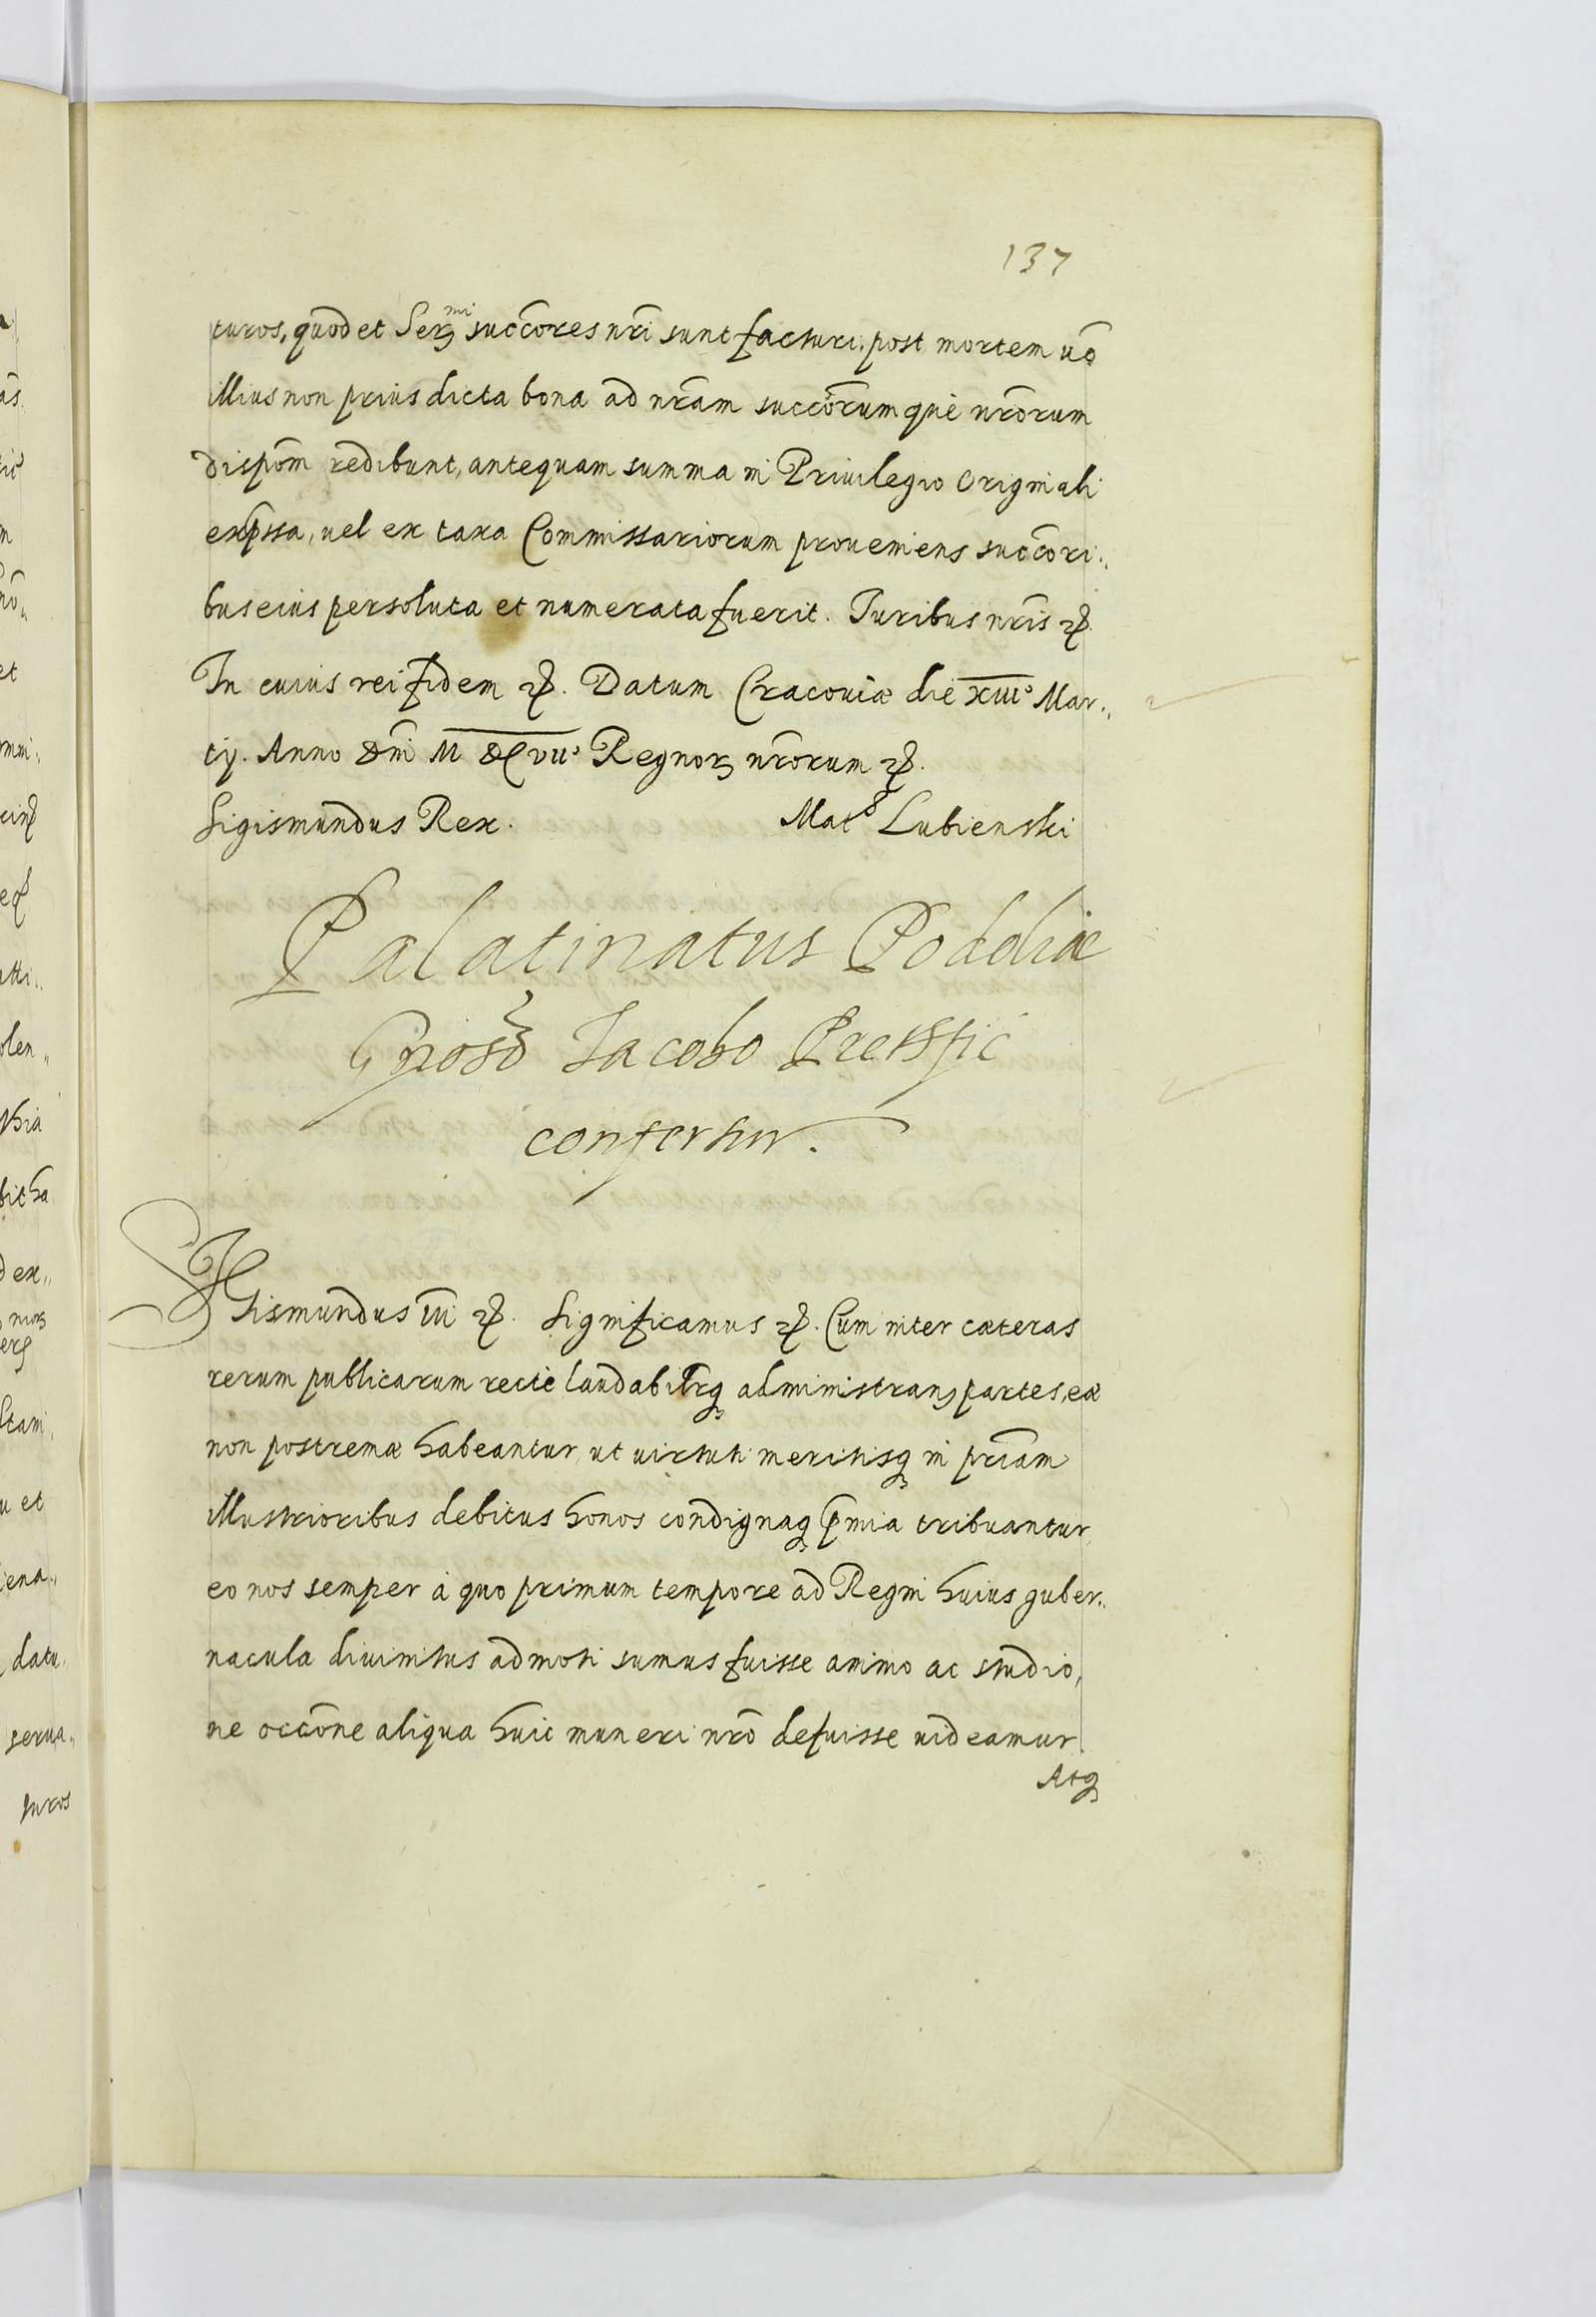 137
turos, quod et Ser^mi succores nri sunt facturi. post mortem uo
illius non prius dicta bona ad nram succorum què nrorum
dispom redibunt, antequam summa in Priuilegio originali
expssa, uel ex taxa Commissariorum proueniens succori..
bus eius persoluta et numerata fuerit. Iuribus nris &.
In cuius rei fidem &. Datum Cracouiæ die XIII° Mar..
tij. Anno Dni M DC VII° Regnorꝫ nrorum &.
Sigismundus Rex. Mat: Lubienski
Palatinatus Podoliæ
Gnoso Iacobo Pretffic
confertur.
Sigismundus III &. Significamus &. Cum inter cæteras
rerum publicarum rectè laudabilrq administranꝫ partes, eæ
non postremæ habeantur, ut uirtuti meritisq in priam
illustrioribus debitus honos condignaq pmia tribuantur,
eo nos semper à quo primum tempore ad Regni huius guber..
nacula diuinitus admoti sumus fuisse animo ac studio,
ne occone aliqua huic muneri nro defuisse uideamur.
Atq